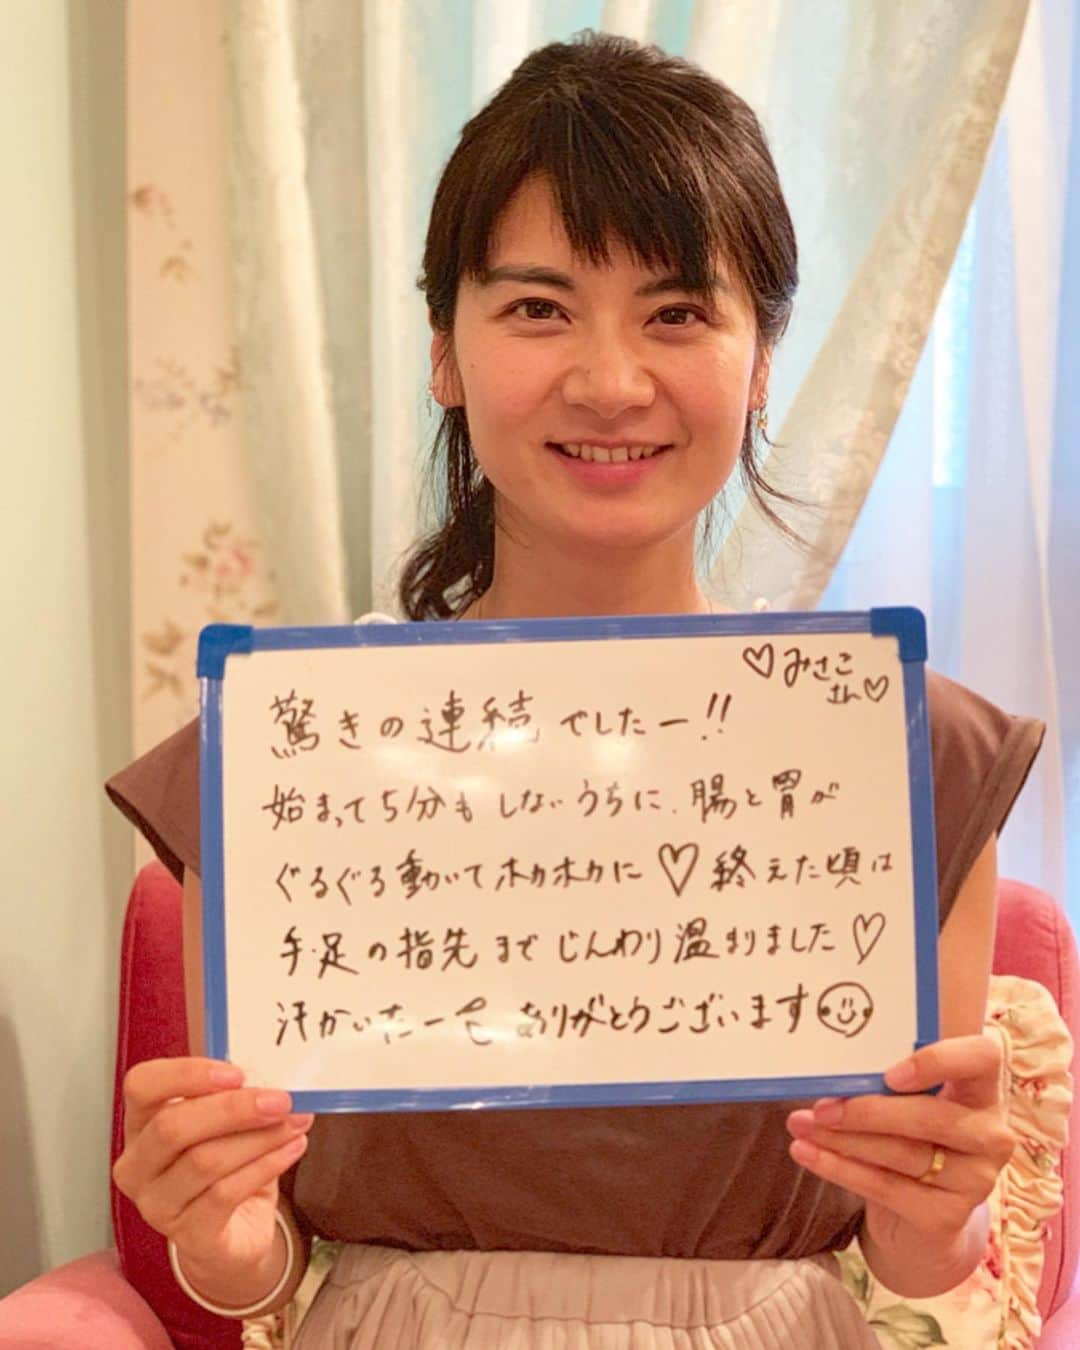 ♡みさこ
さん♡
驚きの連続でしたー!!
始まって5分もしないうちに、腸と胃が
ぐるぐる動いてホカホカに♡終えた頃は
手足の指先までじんわり温まりました♡
汗かいたー ありがとうございます